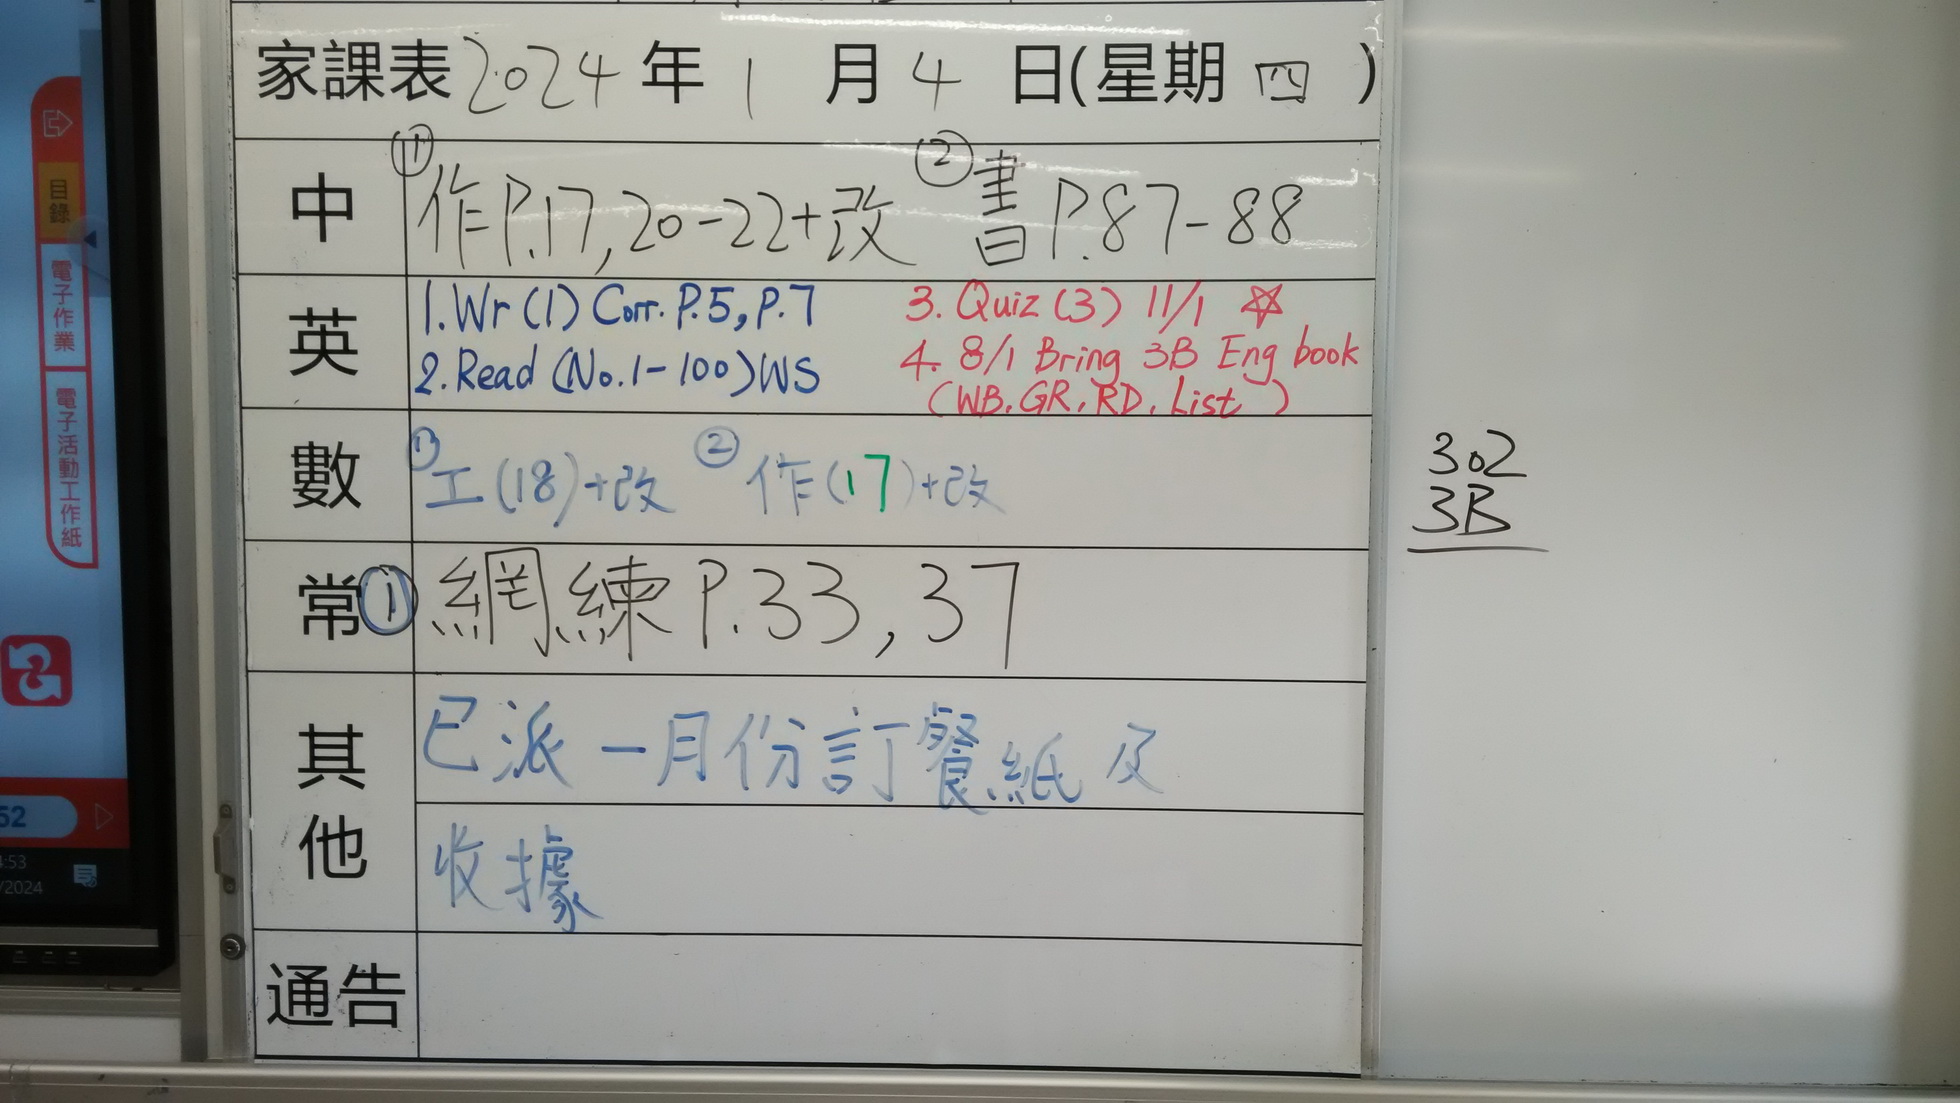 家課表 2024 年 1 月 4 日(星期 四 )
中 ① 作P.17,20-22+改 ② 書P.87-88
英 1. Wr (1) Corr. P.5, P.7
2. Read (No.1-100) WS
3. Quiz (3) 11/1 ☆
4. 8/1 Bring 3B Eng book
(WB, GR, RD, List)
數 ① 工(18)+改 ② 作(17)+改
常 ① 網練 P.33,37
其他 已派一月份訂餐紙及
收據
通告
302
3B
目錄
電子作業
電子活動工作紙
52
:53
/2024